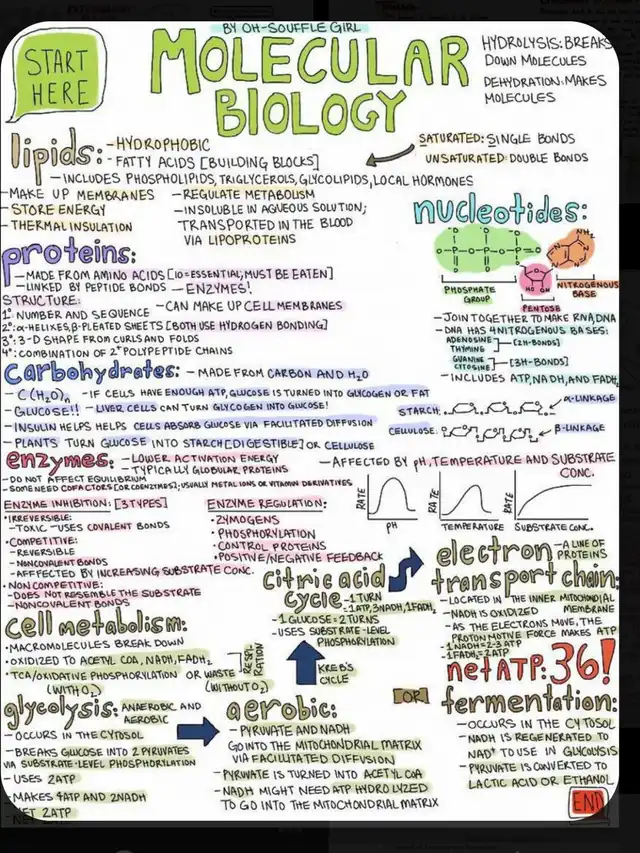 START
HERE
BY OH-SOUFFLE GIRL
MOLECULAR
BIOLOGY
HYDROLYSIS: BREAKS
DOWN MOLECULES
DEHYDRATION: MAKES
MOLECULES
lipids:
-HYDROPHOBIC
-FATTY ACIDS [BUILDING BLOCKS]
-INCLUDES PHOSPHOLIPIDS, TRIGLYCEROLS, GLYCOLIPIDS, LOCAL HORMONES
SATURATED: SINGLE BONDS
UNSATURATED: DOUBLE BONDS
-MAKE UP MEMBRANES
-STORE ENERGY
-THERMAL INSULATION
-REGULATE METABOLISM
-INSOLUBLE IN AQUEOUS SOLUTION;
TRANSPORTED IN THE BLOOD
VIA LIPOPROTEINS
nucleotides:
PHOSPHATE
GROUP
PENTOSE
NITROGENOUS
BASE
-JOIN TOGETHER TO MAKE RNA, DNA
-DNA HAS 4 NITROGENOUS BASES:
ADENOSINE
THYMINE
[2H-BONDS]
GUANINE
CYTOSINE
[3H-BONDS]
-INCLUDES ATP, NADH, AND FADH2
proteins:
-MADE FROM AMINO ACIDS [10=ESSENTIAL; MUST BE EATEN]
-LINKED BY PEPTIDE BONDS -ENZYMES!
STRUCTURE:
-CAN MAKE UP CELL MEMBRANES
1°: NUMBER AND SEQUENCE
2°: α-HELIXES, β-PLEATED SHEETS [BOTH USE HYDROGEN BONDING]
3°: 3-D SHAPE FROM CURLS AND FOLDS
4°: COMBINATION OF 2+ POLYPEPTIDE CHAINS
carbohydrates:
-MADE FROM CARBON AND H2O
-C(H2O)n -IF CELLS HAVE ENOUGH ATP, GLUCOSE IS TURNED INTO GLYCOGEN OR FAT
-GLUCOSE!! -LIVER CELLS CAN TURN GLYCOGEN INTO GLUCOSE!
-INSULIN HELPS HELPS CELLS ABSORB GLUCOSE VIA FACILITATED DIFFUSION
-PLANTS TURN GLUCOSE INTO STARCH [DIGESTIBLE] OR CELLULOSE
STARCH:
α-LINKAGE
CELLULOSE:
β-LINKAGE
enzymes:
-LOWER ACTIVATION ENERGY
-TYPICALLY GLOBULAR PROTEINS
-DO NOT AFFECT EQUILIBRIUM
-SOME NEED COFACTORS [OR COENZYMES]; USUALLY METAL IONS OR VITAMIN DERIVATIVES
-AFFECTED BY pH, TEMPERATURE AND SUBSTRATE
CONC.
RATE
pH
RATE
TEMPERATURE
RATE
SUBSTRATE CONC.
ENZYME INHIBITION: [3 TYPES]
•IRREVERSIBLE:
-TOXIC -USES COVALENT BONDS
•COMPETITIVE:
-REVERSIBLE
-NONCOVALENT BONDS
-AFFECTED BY INCREASING SUBSTRATE CONC.
•NON COMPETITIVE:
-DOES NOT RESEMBLE THE SUBSTRATE
-NONCOVALENT BONDS
ENZYME REGULATION:
•ZYMOGENS
•PHOSPHORYLATION
•CONTROL PROTEINS
•POSITIVE/NEGATIVE FEEDBACK
citric acid
cycle
-1 TURN
=1 ATP, 3 NADH, 1 FADH2
-1 GLUCOSE = 2 TURNS
-USES SUBSTRATE-LEVEL
PHOSPHORYLATION
KREB'S
CYCLE
electron
transport chain:
-A LINE OF
PROTEINS
-LOCATED IN THE INNER MITOCHONDRIAL
MEMBRANE
-NADH IS OXIDIZED
-AS THE ELECTRONS MOVE, THE
PROTON MOTIVE FORCE MAKES ATP
-1 NADH=2-3 ATP
-1 FADH2=2 ATP
net ATP: 36!
cell metabolism:
-MACROMOLECULES BREAK DOWN
•OXIDIZED TO ACETYL COA, NADH, FADH2
•TCA/OXIDATIVE PHOSPHORYLATION OR WASTE
(WITH O2)
(WITHOUT O2)
RESPIRATION
glycolysis:
ANAEROBIC AND
AEROBIC
-OCCURS IN THE CYTOSOL
-BREAKS GLUCOSE INTO 2 PYRUVATES
VIA SUBSTRATE-LEVEL PHOSPHORYLATION
-USES 2ATP
-MAKES 4ATP AND 2NADH
-NET 2ATP
aerobic:
-PYRUVATE AND NADH
GO INTO THE MITOCHONDRIAL MATRIX
VIA FACILITATED DIFFUSION
-PYRUVATE IS TURNED INTO ACETYL COA
-NADH MIGHT NEED ATP HYDROLYZED
TO GO INTO THE MITOCHONDRIAL MATRIX
OR
fermentation:
-OCCURS IN THE CYTOSOL
-NADH IS REGENERATED TO
NAD+ TO USE IN GLYCOLYSIS
-PYRUVATE IS CONVERTED TO
LACTIC ACID OR ETHANOL
END